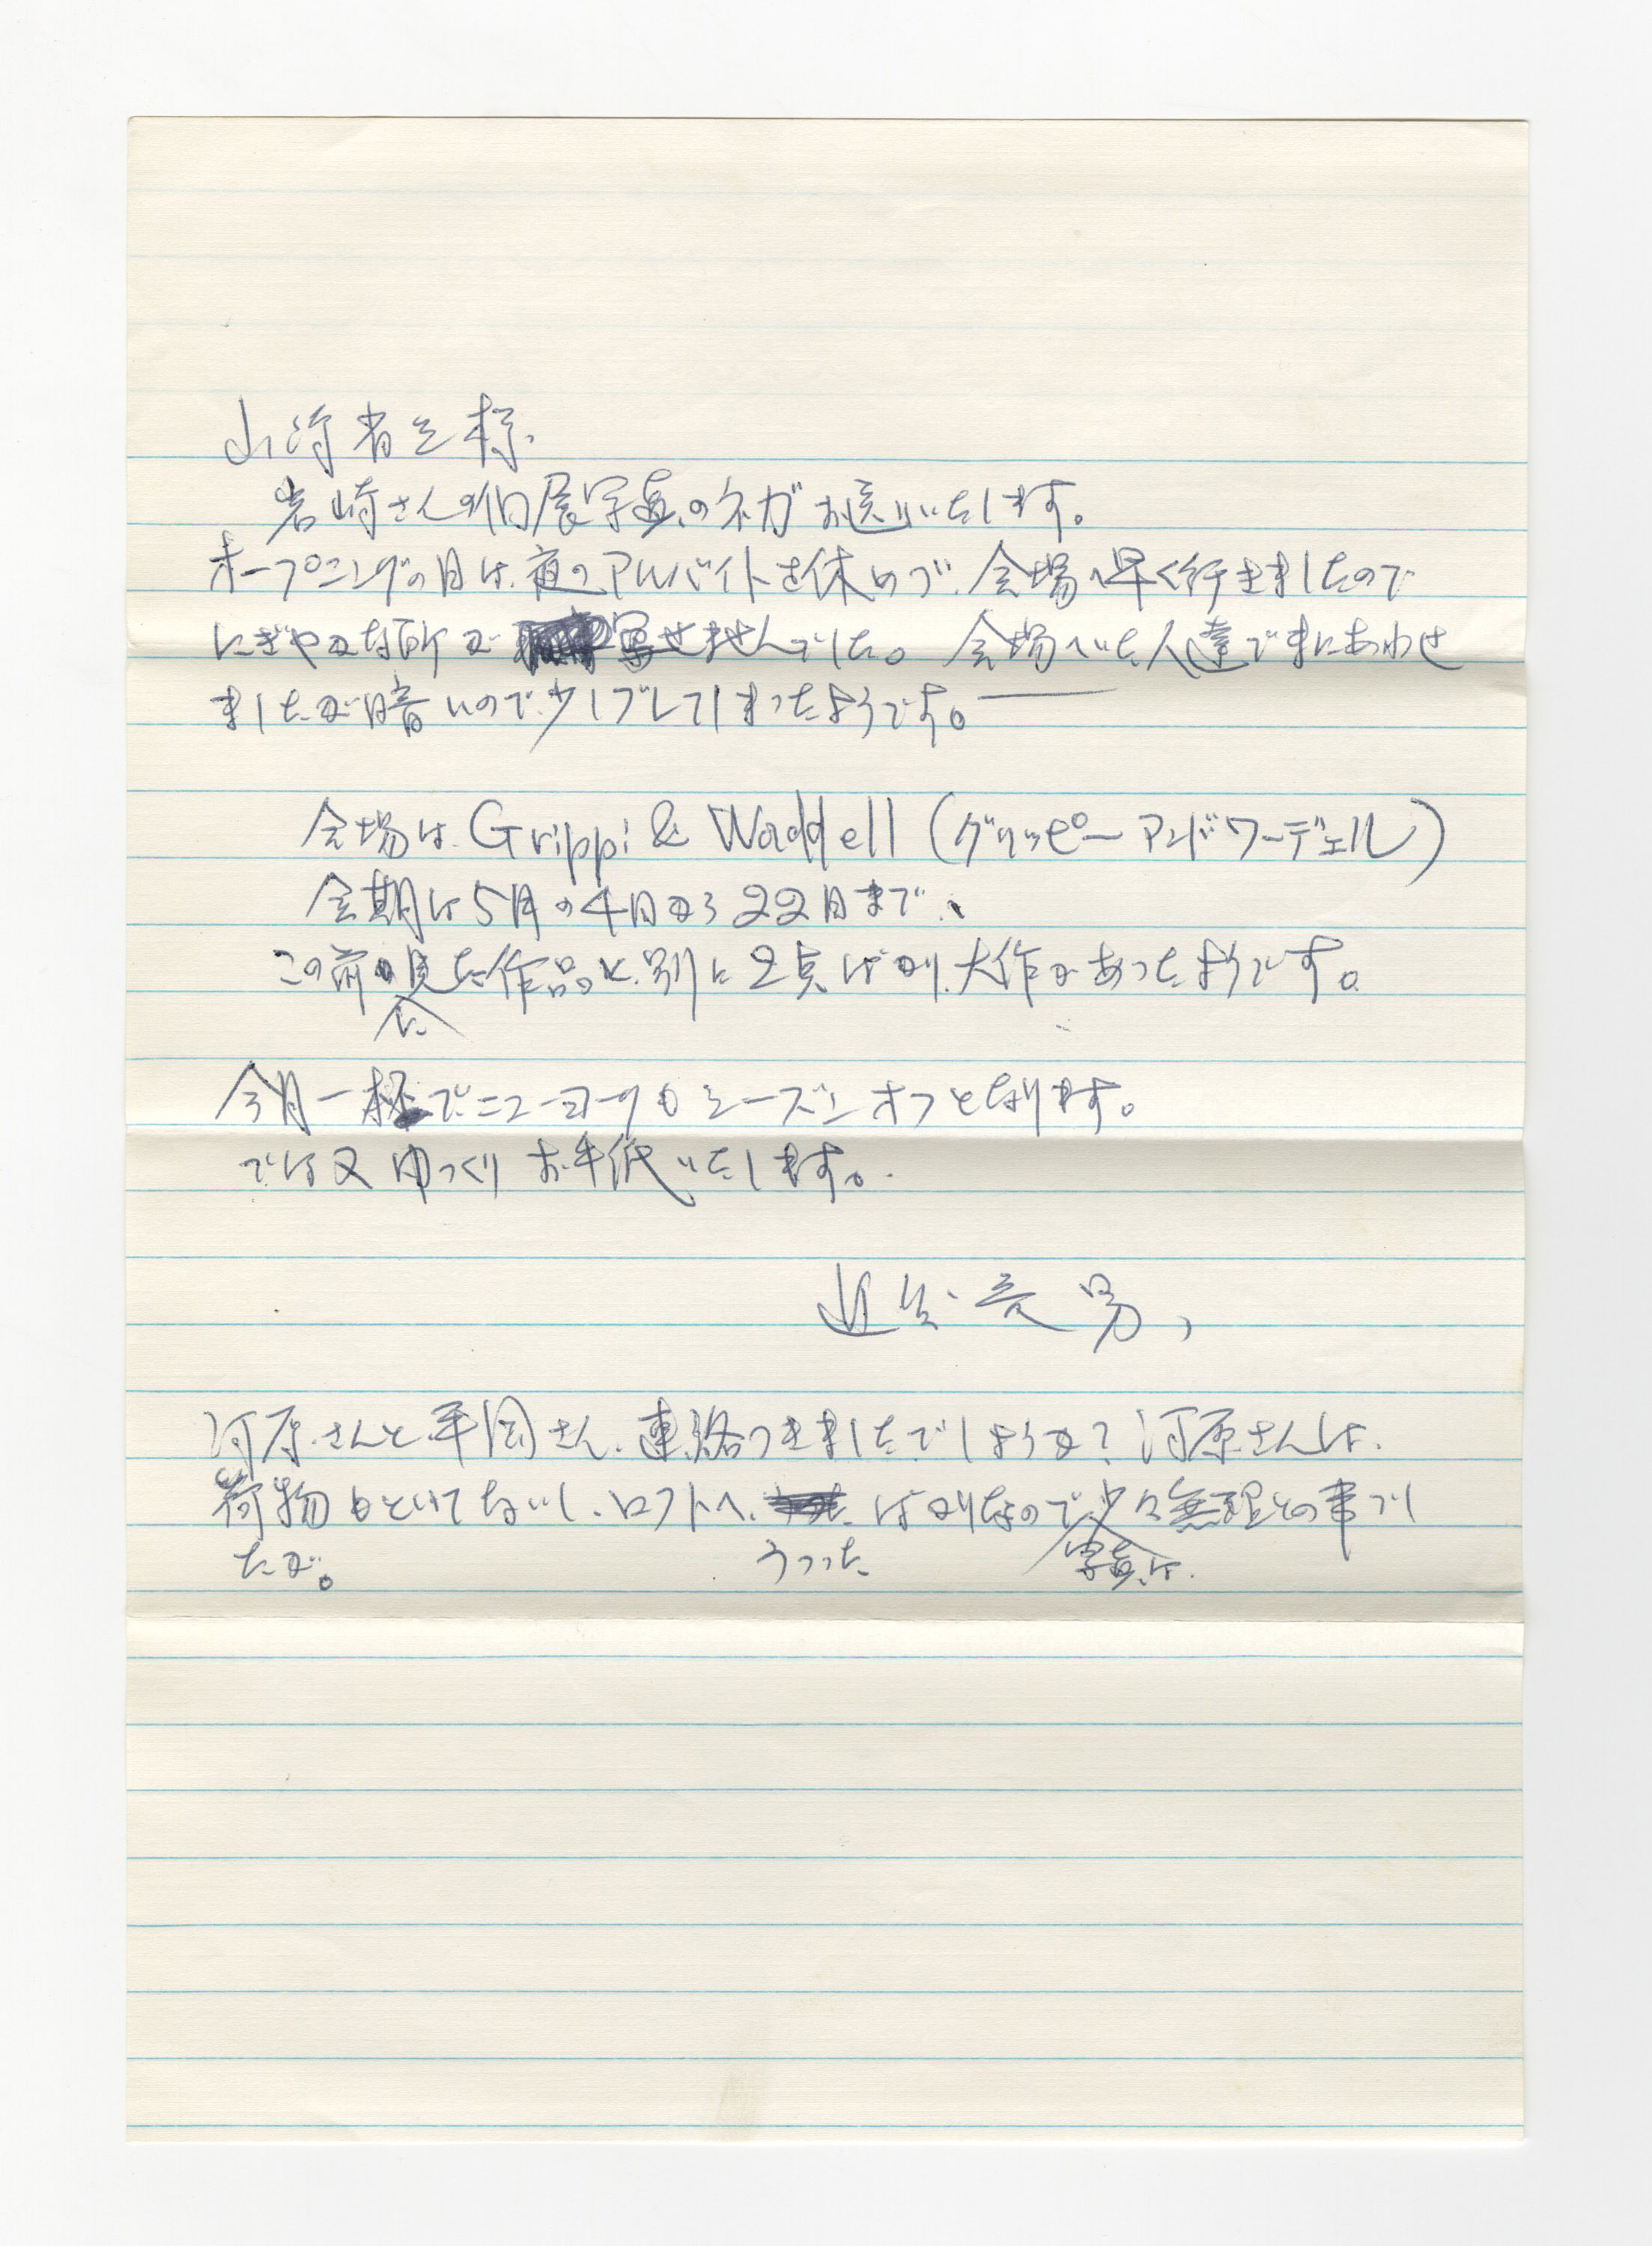 山崎省三様
岩崎さんの個展写真のネガお送りいたします。
オープニングの日は、夜のアルバイトを休めず、会場へ早く行きましたので
にぎやかな所が写せませんでした。会場へいた人達でまにあわせ
ましたが暗いので少しブレてしまったようです。
会場は Grippi & Waddell (グリッピー アンド ワーデェル)
会期は5月の4日から22日まで、
この前に見た作品と別に2点ばかり、大作があったようです。
今月一杯でニューヨークもシーズン オフとなります。
では又ゆっくり お手紙いたします。
近 男、
河原さんと平岡さん、連絡つきましたでしようか？河原さんは、
荷物もといてないし、ロフトへ、うつったばかりなので写真は少々無理との事でし
たが。